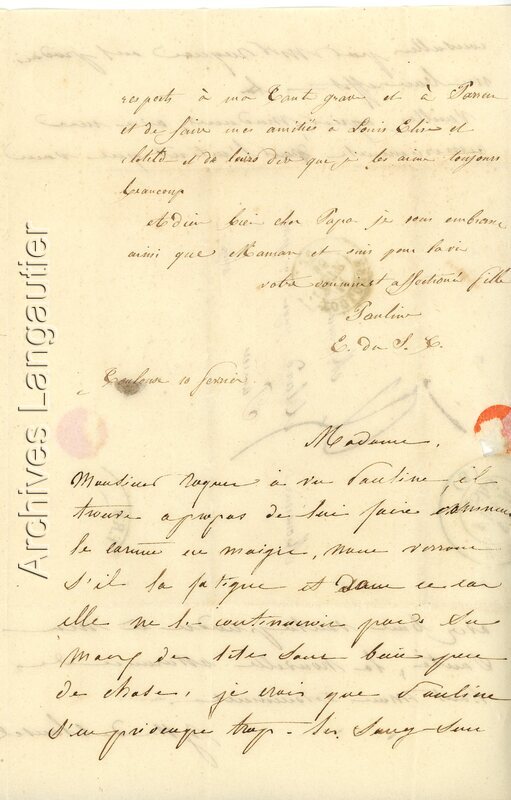 respects à ma tante grave et à Parrein
et de faire mes amitiés à Louis Elise et
clotild et de leurs dire que je les aime toujours
beaucoup
Adieu bien cher Papa je vous embrasse
ainsi que Maman et suis pour la vie
votre soumise et affectioné fille
Pauline
E. du S. C.
Toulouse 10 fevrier.
Madame,
Monsieur roques à vu Pauline, il
trouve apropos de lui faire commencer
le carême en maigre, nous verrons
s'il la fatigue et dans ce cas
elle ne le continuerai pas. Ses
maux de tête sont bien peu
de chose, je crois que Pauline
s'en préoccupe trop. les Sang-sues
Archives Langautier